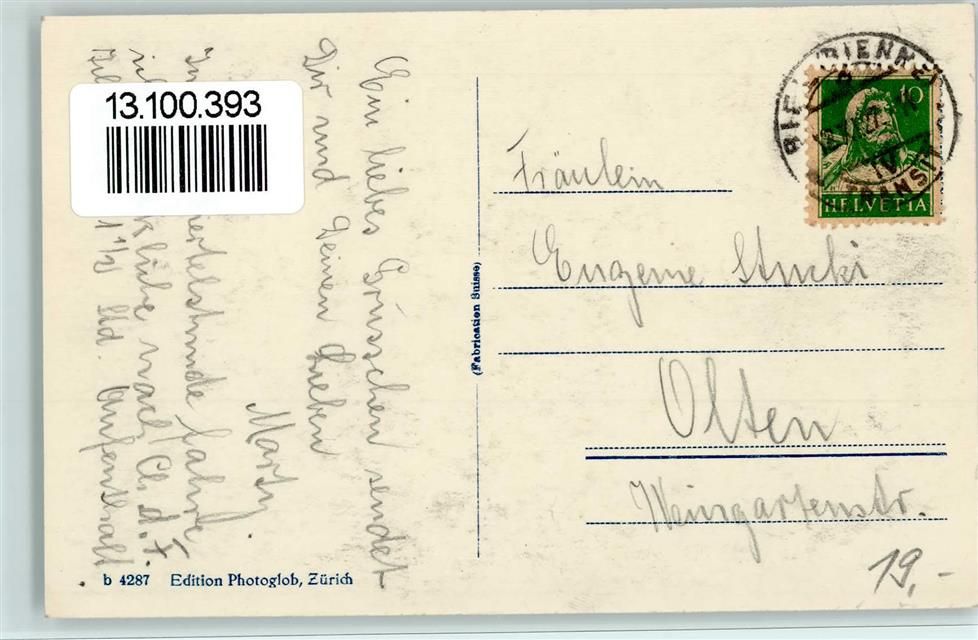 Ein liebes Grüsschen sendet
Dir und Deinen Lieben
Marty.
In ertelstunde fahre
nach Ch. d. F.
1 1/2 Std. Aufenthalt
13.100.393
b 4287 Edition Photoglob, Zürich
(Fabrication Suisse)
BIENNE
TRANSIT
10
HELVETIA
Fräulein
Eugenie Stucki
Olten
Weingartenstr.
19,-